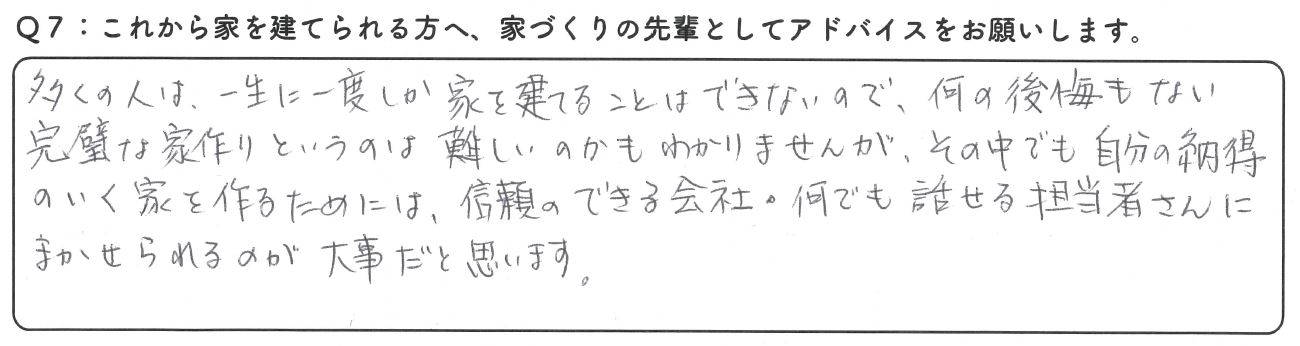 Q7：これから家を建てられる方へ、家づくりの先輩としてアドバイスをお願いします。
多くの人は、一生に一度しか家を建てることはできないので、何の後悔もない
完璧な家作りというのは難しいのかもわかりませんが、その中でも自分の納得
のいく家を作るためには、信頼のできる会社・何でも話せる担当者さんに
まかせられるのが大事だと思います。